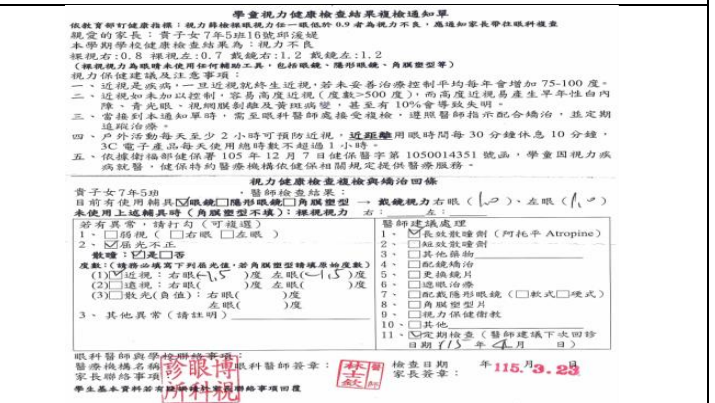 學童視力健康檢查結果複檢通知單
依教育部訂健康指標：視力篩檢裸眼視力任一眼低於0.9者為視力不良，應通知家長帶往眼科複查
親愛的家長：貴子女7年5班16號邱湲媞
本學期學校健康檢查結果為：視力不良
裸視右:0.8 裸視左:0.7 戴鏡右:1.2 戴鏡左:1.2
(裸視視力為眼睛未使用任何輔助工具，包括眼鏡、隱形眼鏡、角膜塑型等)
視力保健建議及注意事項：
一、近視是疾病，一旦近視就終生近視，若未妥善治療控制平均每年會增加 75-100 度。
二、近視如未加以控制，容易高度近視(度數>500 度)，而高度近視易產生早年性白內
障、青光眼、視網膜剝離及黃斑病變，甚至有 10%會導致失明。
三、當接到本通知單時，需至眼科醫師處接受複檢，遵照醫師指示配合矯治，並定期
追蹤治療。
四、戶外活動每天至少 2 小時可預防近視，近距離用眼時間每 30 分鐘休息 10 分鐘，
3C 電子產品每天使用總時數不超過 1 小時。
五、依據衛福部健保署 105 年 12 月 7 日健保醫字第 1050014351 號函，學童因視力疾
病就醫，健保特約醫療機構依健保相關規定提供醫療服務。
視力健康檢查複檢與矯治回條
貴子女7年5班 ，醫師檢查結果：
目前有使用輔具☑眼鏡□隱形眼鏡□角膜塑型 → 戴鏡視力右眼(1.0)、左眼(1.0)
未使用上述輔具時(角膜塑型不填)：裸視視力 右： 左：
若有異常，請打勾(可複選)
1、□弱視(□右眼□左眼)
2、☑屈光不正
散瞳：☑是□否
度數：(請務必填寫下列屈光值，若角膜塑型請填原始度數)
(1)☑近視：右眼(-1.5)度 左眼(-1.5)度
(2)□遠視：右眼( )度 左眼( )度
(3)□散光(負值)：右眼( )度
左眼( )度
3、其他異常(請註明)
醫師建議處理
1、☑長效散瞳劑(阿托平 Atropine)
2、□短效散瞳劑
3、□其他藥物
4、□配鏡矯治
5、□更換鏡片
6、□遮眼治療
7、□配戴隱形眼鏡(□軟式□硬式)
8、□角膜塑型片
9、□視力保健衛教
10、□其他
11、☑定期檢查(醫師建議下次回診
日期 115 年 4 月 日)
眼科醫師與學校聯絡事項：
醫療機構名稱 眼科醫師簽章： 檢查日期 年115.3.23日
家長聯絡事項 家長簽章：
博視眼科診所
林士欽
醫師